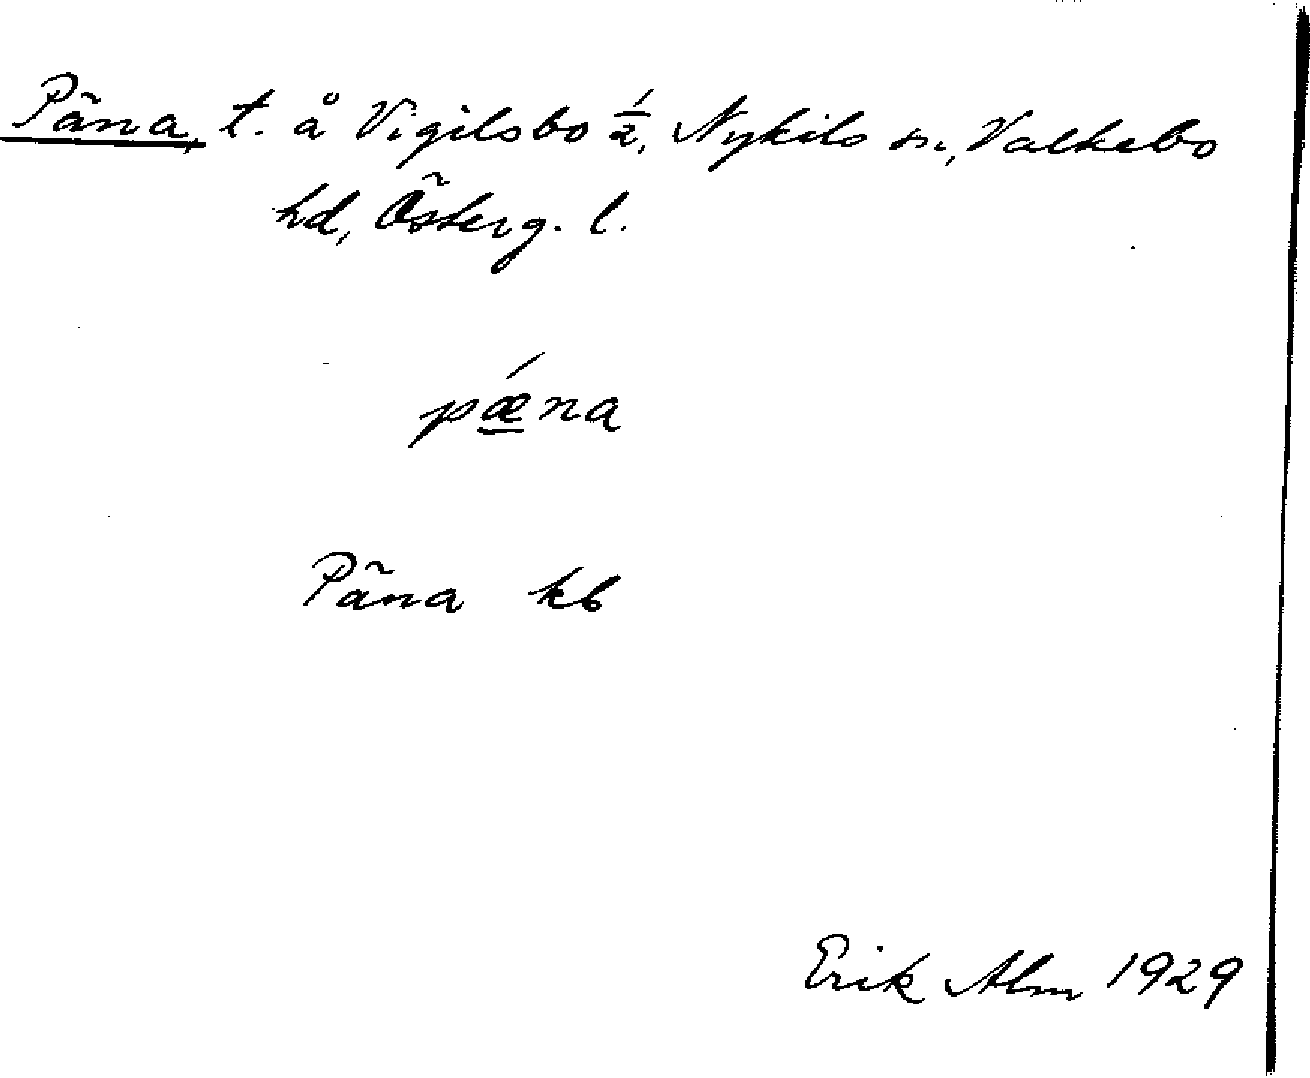 Päna, t. å Vigilsbo 1/2, Nykils sn, Valkebo
hd, Österg. l.
pǽna
Päna kb
Erik Alm 1929